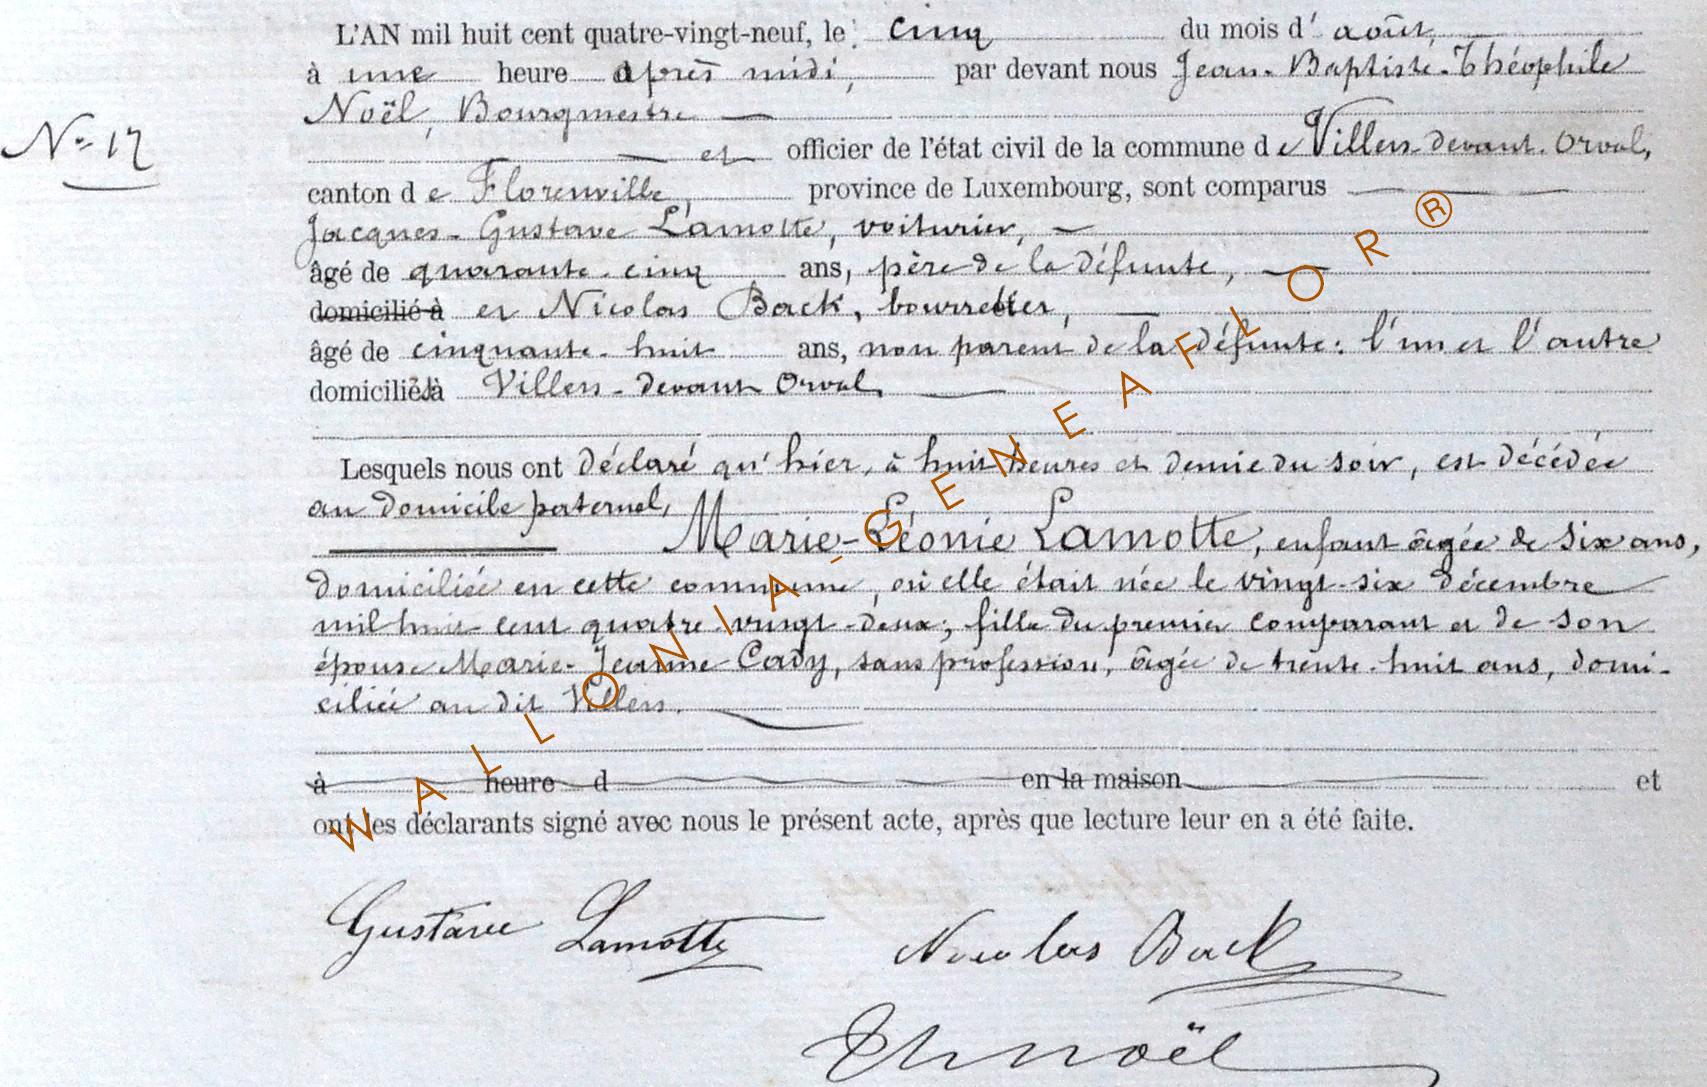 L'AN mil huit cent quatre-vingt-neuf, le cinq du mois d' août,
à une heure après midi, par devant nous Jean-Baptiste-Théophile
Noël, Bourgmestre
N° 17
et officier de l'état civil de la commune de Villers-devant-Orval,
canton de Florenville, province de Luxembourg, sont comparus
Jacques-Gustave Lamotte, voiturier,
âgé de quarante-cinq ans, père de la défunte,
domicilié à et Nicolas Back, bourrelier,
âgé de cinquante-huit ans, non parent de la défunte: l'un et l'autre
domiciliés à Villers-devant Orval,
Lesquels nous ont déclaré qu'hier, à huit heures et demie du soir, est décédée
au domicile paternel,
Marie-Léonie Lamotte, enfant âgée de six ans,
domiciliée en cette commune, où elle était née le vingt-six décembre
mil huit cent quatre-vingt-deux; fille du premier comparant et de son
épouse Marie-Jeanne Cady, sans profession, âgée de trente-huit ans, domi-
ciliée au dit Villers.
à heure d en la maison et
ont les déclarants signé avec nous le présent acte, après que lecture leur en a été faite.
Gustave Lamotte Nicolas Back
Th Noël
WALLONIA-GENEAFLOR®